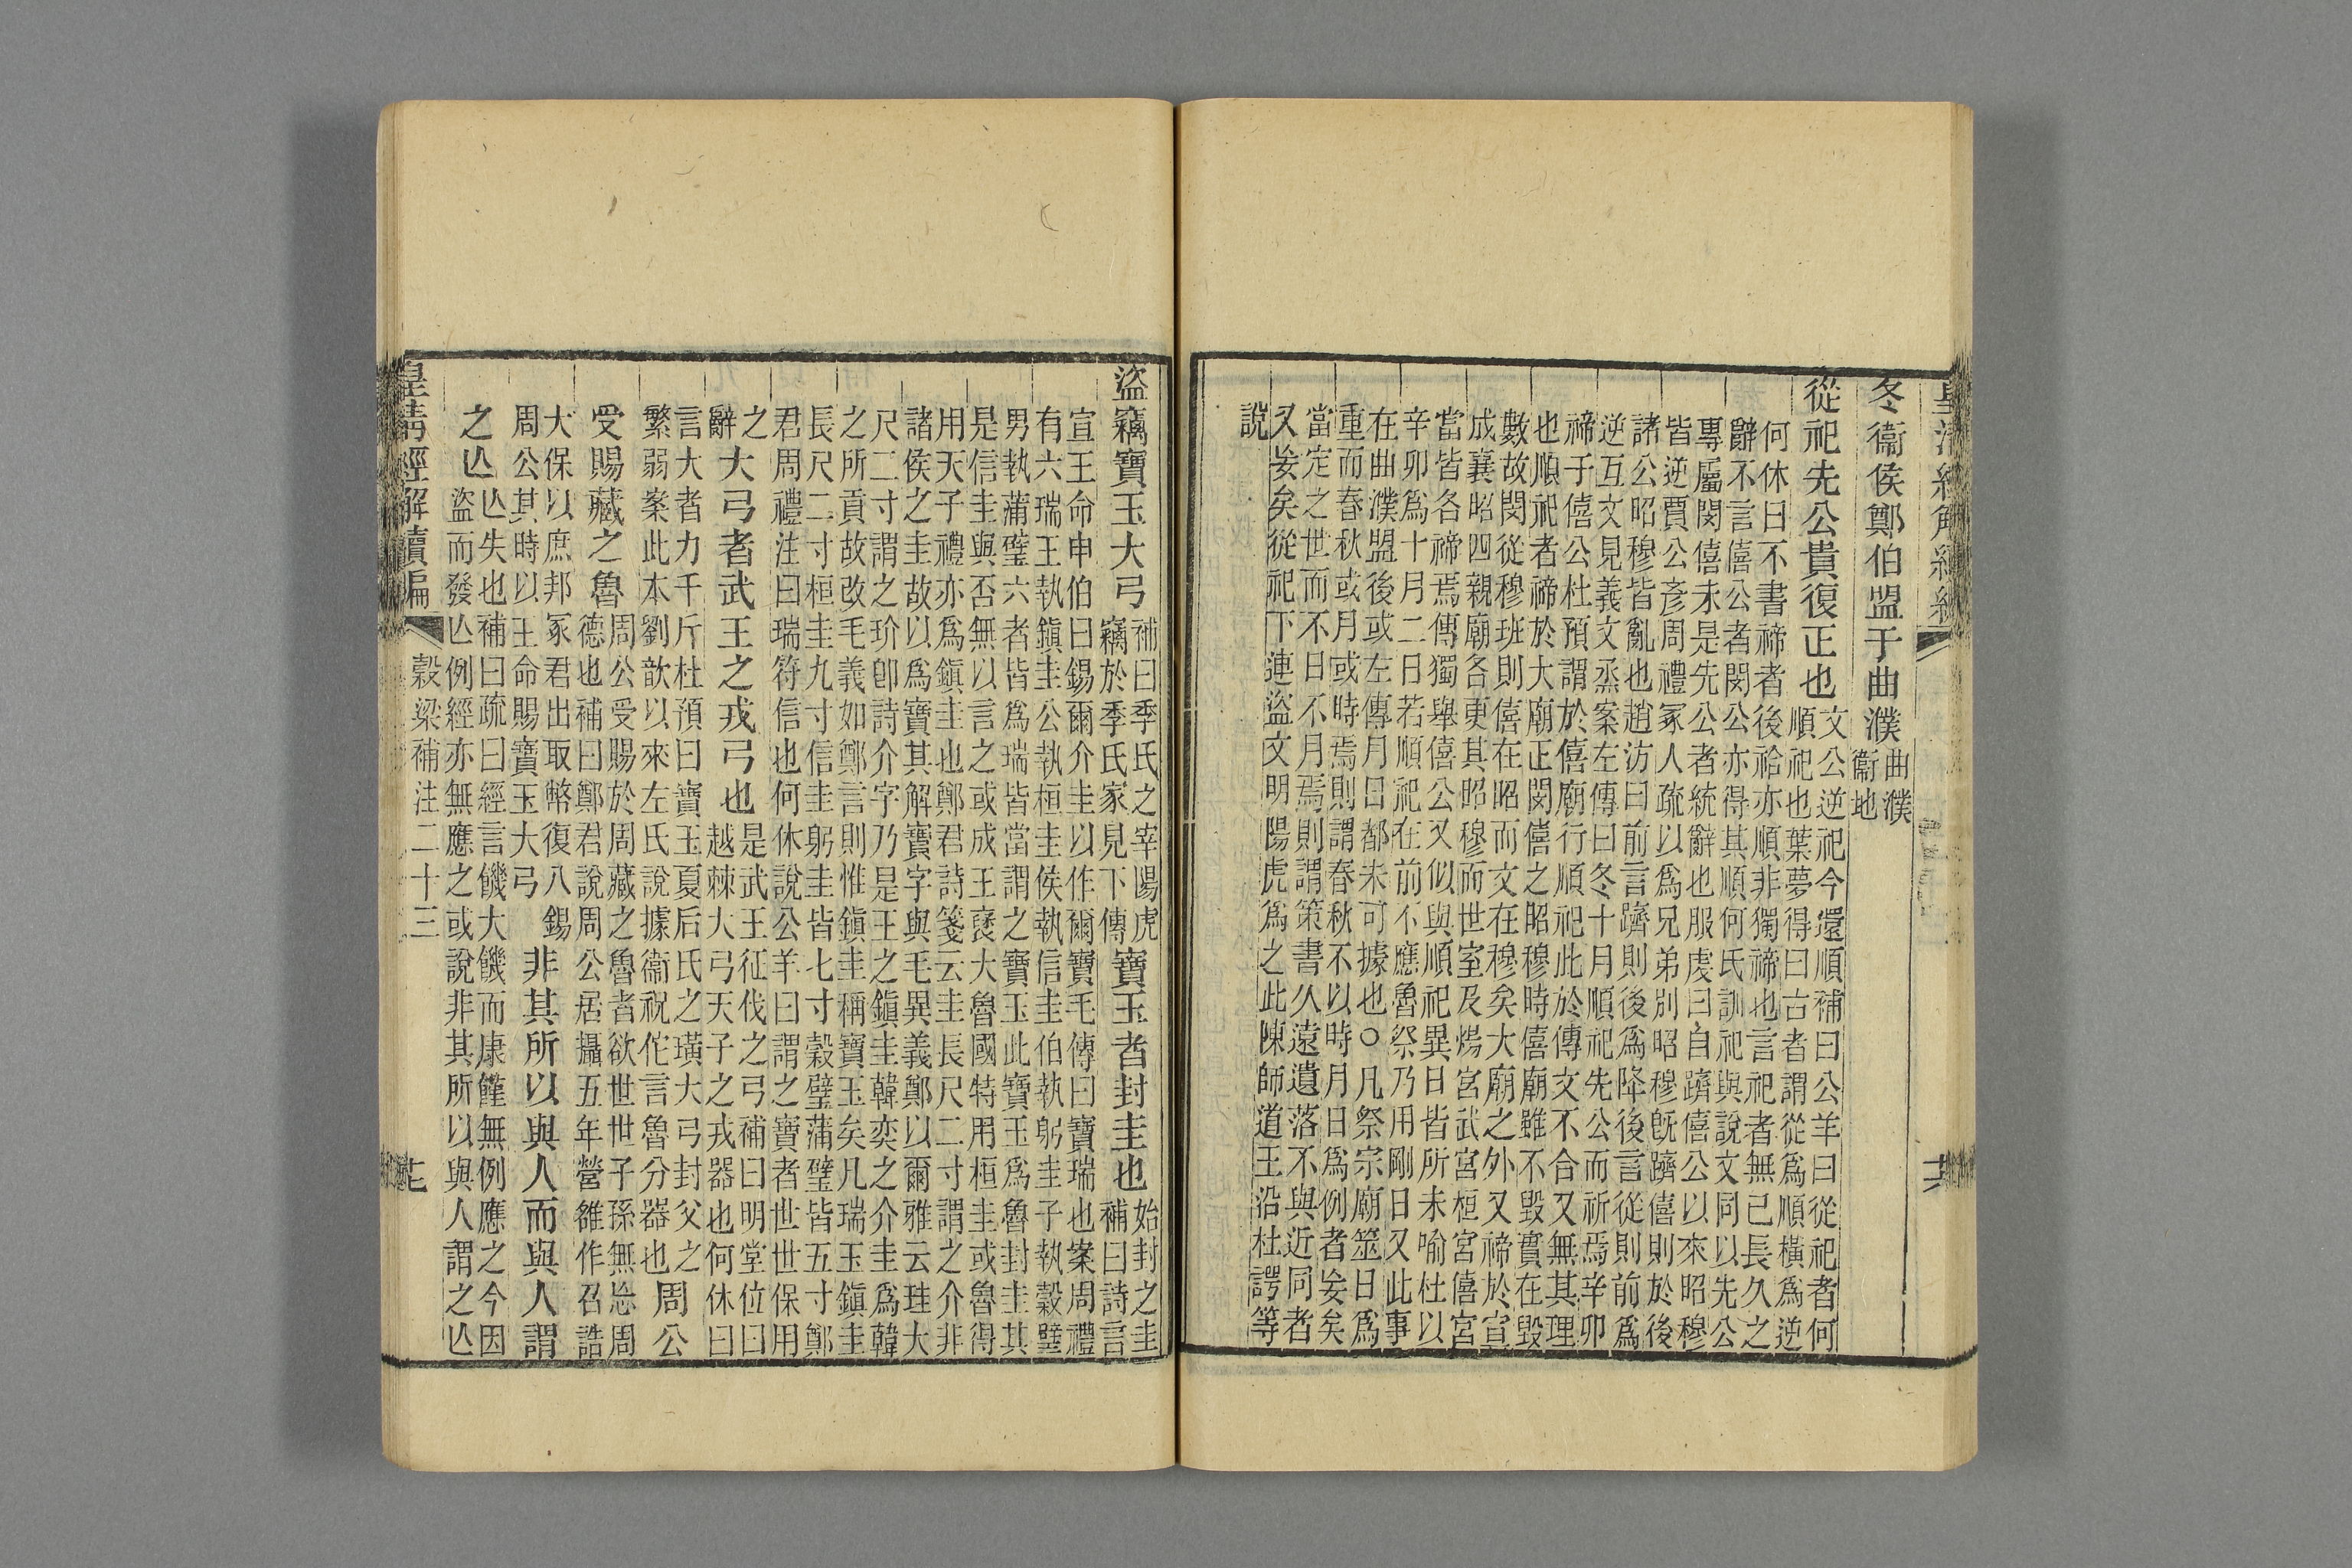 冬衞侯鄭伯盟于曲濮
曲濮
衞地
從祀先公貴復正也
文公逆祀今還順補曰公羊曰從祀者何
順祀也葉夢得曰古者謂從爲順橫爲逆
何休曰不書禘者後祫亦順非獨禘也言祀者無已長久之
辭不言僖公者閔公亦得其順何氏訓祀與說文同以先公
專屬閔僖未是先公者統辭也服虔曰自躋僖公以來昭穆
皆逆賈公彥周禮冢人疏以爲兄弟別昭穆旣躋僖則於後
諸公昭穆皆亂也趙汸曰前言躋則後爲降後言從則前爲
逆互文見義文烝案左傳曰冬十月順祀先公而祈焉辛卯
禘于僖公杜預謂於僖廟行順祀此於傳文不合又無其理
也順祀者禘於大廟正閔僖之昭穆時僖廟雖不毀實在毀
數故閔從穆班則僖在昭而文在穆矣大廟之外又禘於宣
成襄昭四親廟各更其昭穆而世室及煬宮武宮桓宮僖宮
當皆各禘焉傳獨舉僖公又似與順祀異日皆所未喻杜以
辛卯爲十月二日若順祀在前不應魯祭乃用剛日又此事
在曲濮盟後或左傳月日都未可據也○凡祭宗廟筮日爲
重而春秋或月或時焉則謂春秋不以時月日爲例者妄矣
當定之世而不日不月焉則謂策書久遠遺落不與近同者
又妄矣從祀下連盜文明陽虎爲之此陳師道王沿杜諤等
說
盜竊寶玉大弓
補曰季氏之宰陽虎
竊於季氏家見下傳
寶玉者封圭也
始封之圭
補曰詩言
宣王命申伯曰錫爾介圭以作爾寶毛傳曰寶瑞也案周禮
有六瑞王執鎮圭公執桓圭侯執信圭伯執躬圭子執穀璧
男執蒲璧六者皆爲瑞皆當謂之寶玉此寶玉爲魯封圭其
是信圭與否無以言之或成王褒大魯國特用桓圭或魯得
用天子禮亦爲鎮圭也鄭君詩箋云圭長尺二寸謂之介非
諸侯之圭故以爲寶其解寶字與毛異義鄭以爾雅云珪大
尺二寸謂之玠卽詩介字乃是王之鎮圭韓奕之介圭爲韓
之所貢故改毛義如鄭言則惟鎮圭稱寶玉矣凡瑞玉鎮圭
長尺二寸桓圭九寸信圭躬圭皆七寸穀璧蒲璧皆五寸鄭
君周禮注曰瑞符信也何休說公羊曰謂之寶者世世保用
之
辭
大弓者武王之戎弓也
是武王征伐之弓補曰明堂位曰
越棘大弓天子之戎器也何休曰
言大者力千斤杜預曰寶玉夏后氏之璜大弓封父之
繁弱案此本劉歆以來左氏說據衞祝佗言魯分器也
周公
受賜藏之魯
周公受賜於周藏之魯者欲世世子孫無忘周
德也補曰鄭君說周公居攝五年營雒作召誥
大保以庶邦冢君出取幣復入錫
周公其時以王命賜寶玉大弓
非其所以與人而與人謂
之亾
亾失也補曰疏曰經言饑大饑而康饉無例應之今因
盜而發亾例經亦無應之或說非其所以與人謂之亾
皇清經解續編
穀梁補注二十三